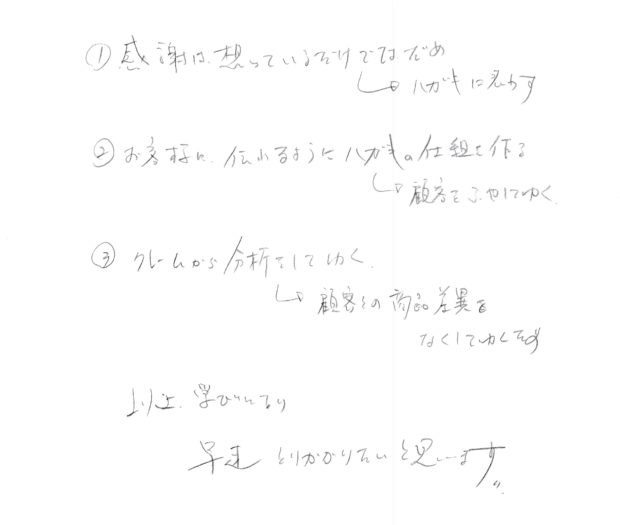 ① 感謝は、想っているだけではだめ
ハガキに表わす
② お客様に、伝わるようにハガキの仕組を作る
顧客をふやしてゆく。
③ クレームから分析をしてゆく。
顧客との商品差異を
なくしてゆくため
以上、学び
早速 とりかかりたいと思います。